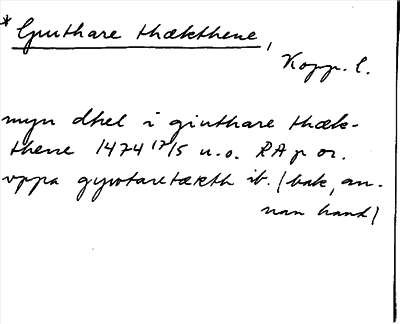 * Giuthare thækthene,
Kopp. l.
myn dhel i giuthare thæk-
thene 1474 17/5 u.o. RAp or.
vppa gywtaretækth ib. (bak, an-
nan hand)